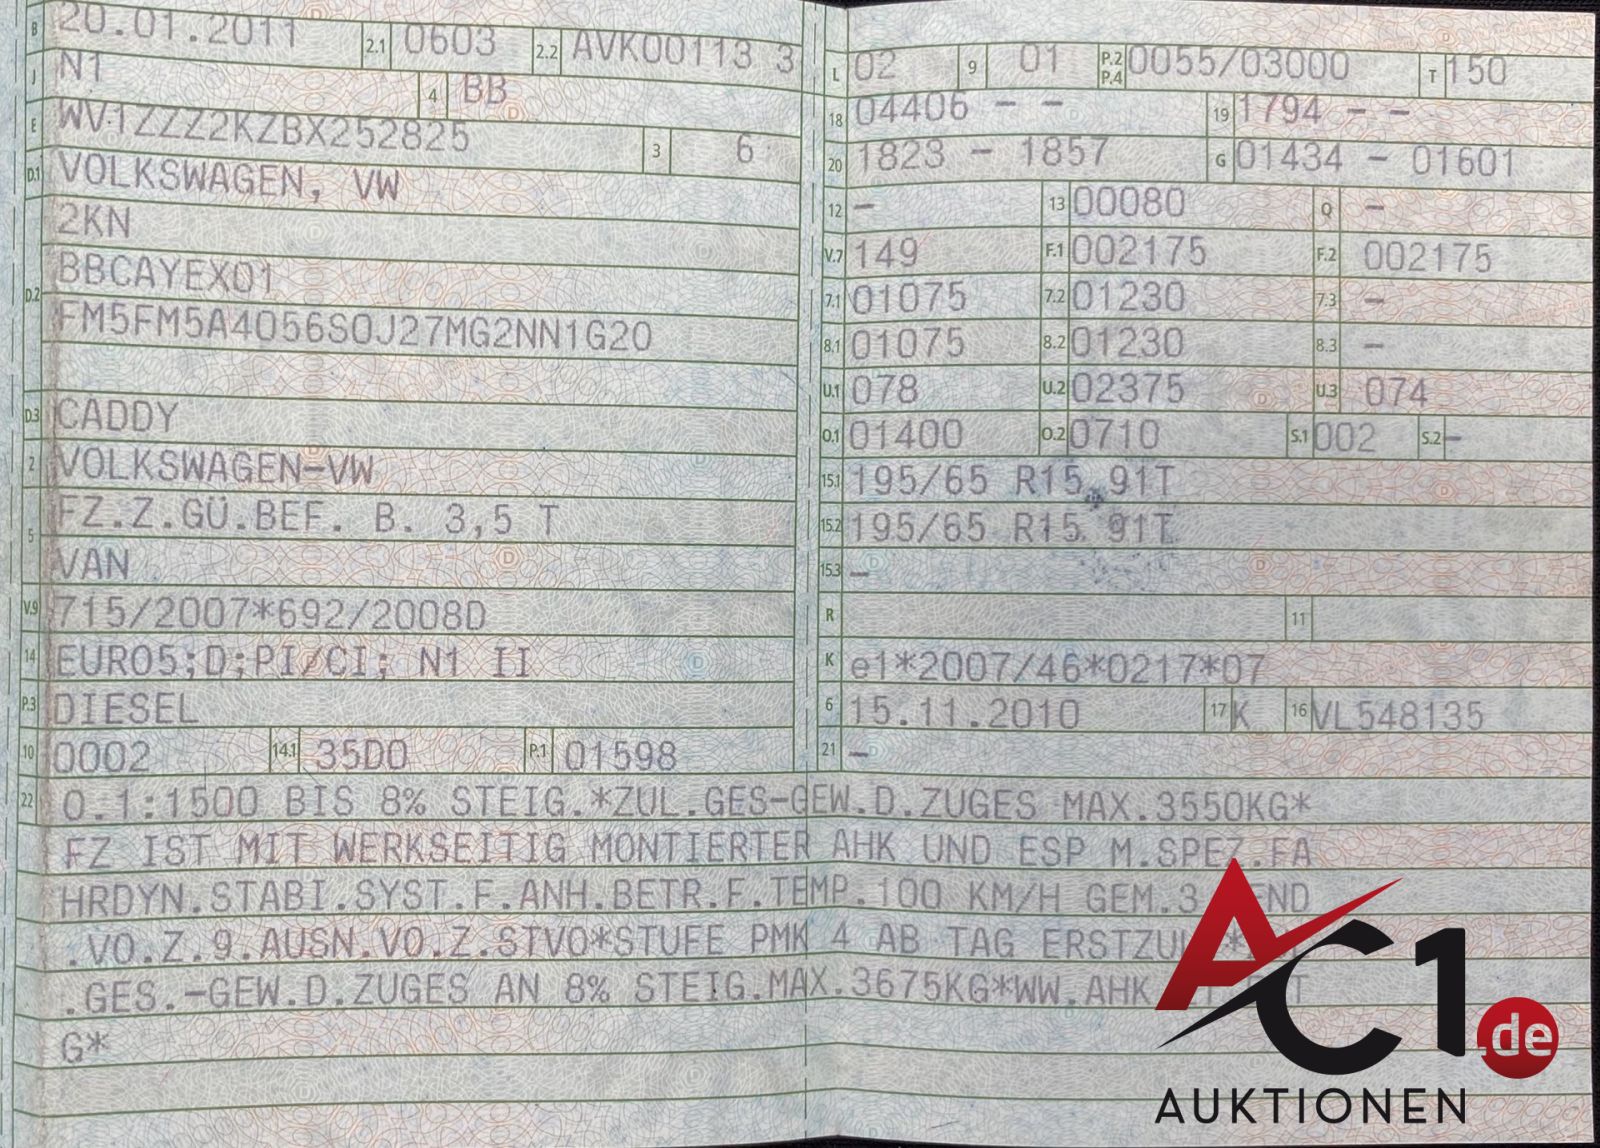 B 20.01.2011 2.1 0603 2.2 AVK00113 3
J N1 4 BB
E WV1ZZZ2KZBX252825 3 6
D.1 VOLKSWAGEN, VW
2KN
D.2 BBCAYEX01
FM5FM5A4056S0J27MG2NN1G20
D.3 CADDY
2 VOLKSWAGEN-VW
5 FZ.Z.GÜ.BEF. B. 3,5 T
VAN
V.9 715/2007*692/2008D
14 EURO5;D;PI/CI; N1 II
P.3 DIESEL
10 0002 14.1 35D0 P.1 01598
L 02 9 01 P.2 P.4 0055/03000 T 150
18 04406 - - 19 1794 - -
20 1823 - 1857 G 01434 - 01601
12 - 13 00080 Q -
V.7 149 F.1 002175 F.2 002175
7.1 01075 7.2 01230 7.3 -
8.1 01075 8.2 01230 8.3 -
U.1 078 U.2 02375 U.3 074
O.1 01400 O.2 0710 S.1 002 S.2 -
15.1 195/65 R15 91T
15.2 195/65 R15 91T
15.3 -
R 11
K e1*2007/46*0217*07
6 15.11.2010 17 K 16 VL548135
21 -
22 O.1:1500 BIS 8% STEIG.*ZUL.GES-GEW.D.ZUGES MAX.3550KG*
FZ IST MIT WERKSEITIG MONTIERTER AHK UND ESP M.SPEZ.FA
HRDYN.STABI.SYST.F.ANH.BETR.F.TEMP.100 KM/H GEM.3 END
.VO.Z.9.AUSN.VO.Z.STVO*STUFE PMK 4 AB TAG ERSTZUL
.GES.-GEW.D.ZUGES AN 8% STEIG.MAX.3675KG*WW.AHK
G*
AC1.de
AUKTIONEN